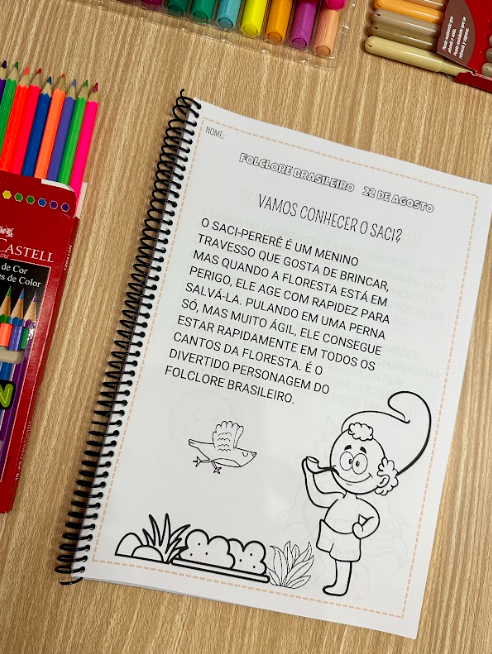 NOME:
FOLCLORE BRASILEIRO 22 DE AGOSTO
VAMOS CONHECER O SACI?
O SACI-PERERÊ É UM MENINO
TRAVESSO QUE GOSTA DE BRINCAR,
MAS QUANDO A FLORESTA ESTÁ EM
PERIGO, ELE AGE COM RAPIDEZ PARA
SALVÁ-LA. PULANDO EM UMA PERNA
SÓ, MAS MUITO ÁGIL, ELE CONSEGUE
ESTAR RAPIDAMENTE EM TODOS OS
CANTOS DA FLORESTA. É O
DIVERTIDO PERSONAGEM DO
FOLCLORE BRASILEIRO.
CASTELL
de Cor
es de Color